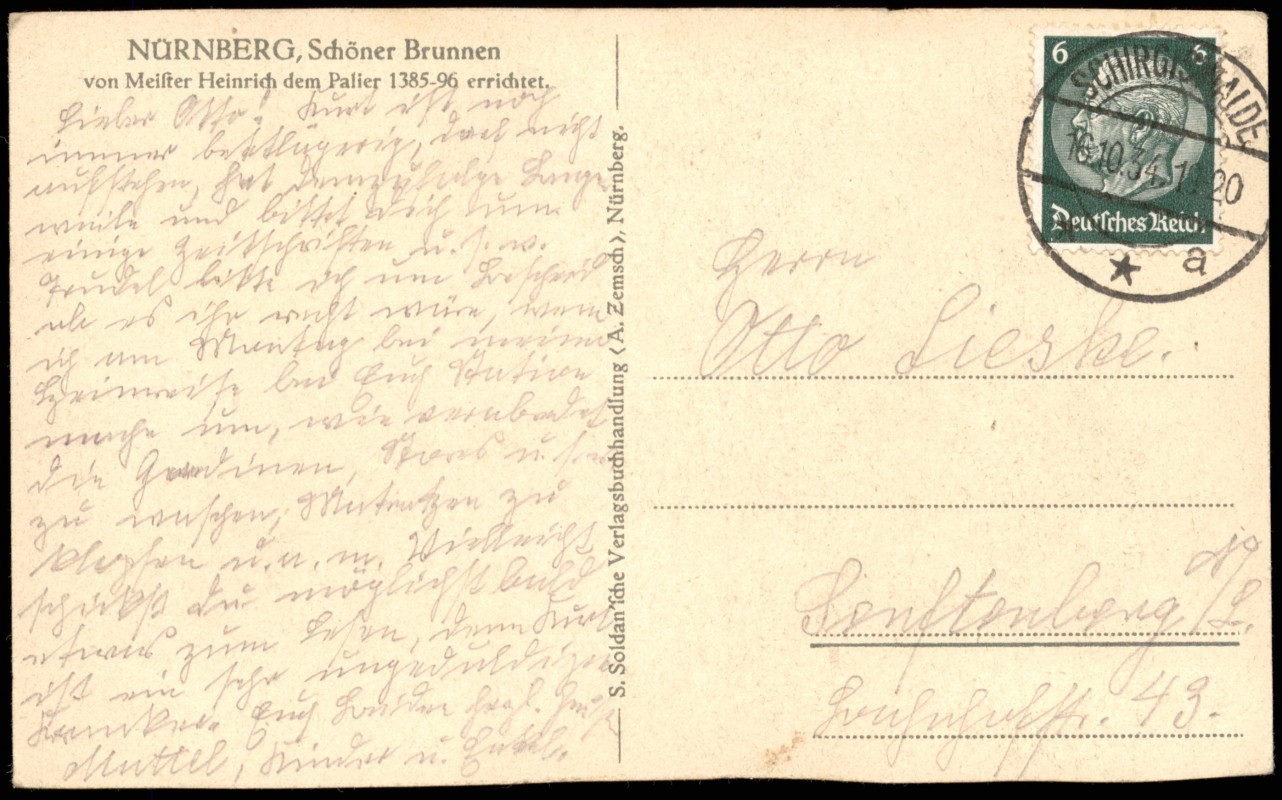 NÜRNBERG, Schöner Brunnen
von Meister Heinrich dem Palier 1385-96 errichtet.
Lieber Otto! Kurt ist noch
immer bettlägerig, darf nicht
aufstehen, hat demzufolge Lange-
weile und bittet dich um
einige Zeitschriften u.s.w.
Trudel bitte ich um Bescheid
ob es ihr recht wäre, wenn
ich am Montag bei meiner
Heimreise bei Euch Station
mache um, wie verabredet
die Gardinen, Stores u.s.w.
zu waschen, Matratzen zu
klopfen u.a.m. Vielleicht
schickst Du möglichst bald
etwas zum Lesen, denn Kurt
ist ein sehr ungeduldiger
Kranker. Euch beiden herzl. Grüße
Muttel, Kinder u. Enkel.
S. Soldan'sche Verlagsbuchhandlung (A. Zemsch), Nürnberg.
6 6
Deutsches Reich
SCHIRGISWALDE
10.34
20
★ a
Herrn
Otto Lieske.
Senftenberg /L.
Bahnhofstr. 43.